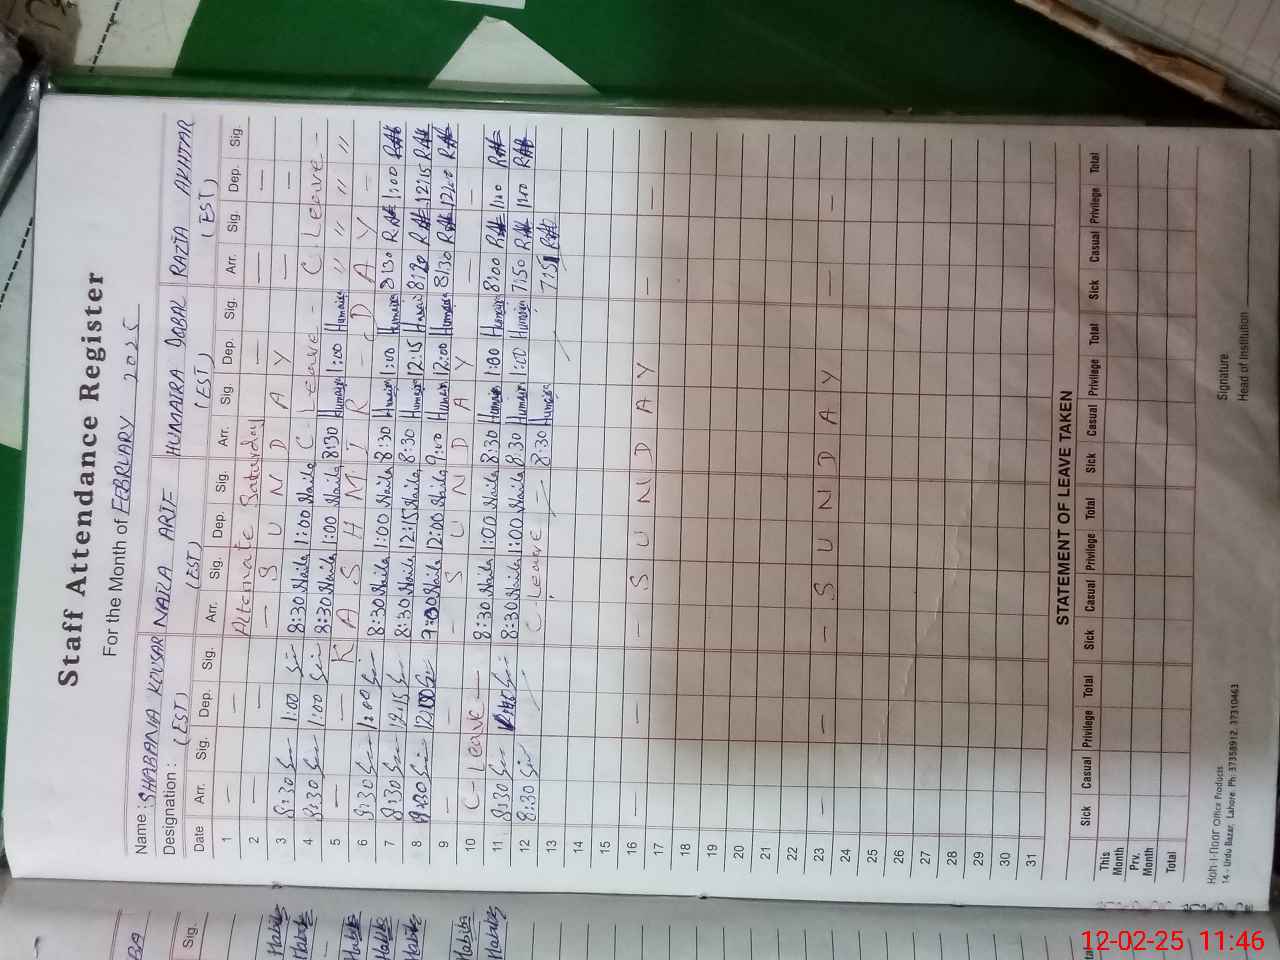 Staff Attendance Register
For the Month of FEBRUARY 2025
Name : SHABANA KOUSAR NAILA ARIF HUMAIRA IQBAL RAZIA AKHTAR
Designation : (EST) (EST) (EST) (EST)
Date Arr. Sig. Dep. Sig. Arr. Sig. Dep. Sig. Arr. Sig. Dep. Sig. Arr. Sig. Dep. Sig.
1 — — Alternate Saturday — —
2 — — — S U N D A Y — —
3 8:30 1:00 8:30 Naila 1:00 Naila C. Leave - C. Leave -
4 8:30 1:00 8:30 Naila 1:00 Naila 8:30 Humaira 1:00 Humaira " " " "
5 — — K A S H M I R - D A Y —
6 8:30 1:00 8:30 Naila 1:00 Naila 8:30 Humaira 1:00 Humaira 8:30 1:00
7 8:30 12:15 8:30 Naila 12:15 Naila 8:30 Humaira 12:15 8:20 12:15
8 12:00 Naila 12:00 Naila 9:00 Humaira 12:00 Humaira 8:30 12:00
9 — — — S U N D A Y — —
10 C- Leave — 8:30 Naila 1:00 Naila 8:30 Humaira 1:00 Humaira 8:00 1:00
11 8:30 8:30 Naila 1:00 Naila 8:30 Humaira 1:00 Humaira 7:50 1:00
12 8:30 C- Leave 8:30 Humaira 7:51
13
14
15
16 — — — S U N D A Y — —
17
18
19
20
21
22
23 — — — S U N D A Y — —
24
25
26
27
28
29
30
31
STATEMENT OF LEAVE TAKEN
Sick Casual Privilege Total Sick Casual Privilege Total Sick Casual Privilege Total Sick Casual Privilege Total
This Month
Prv. Month
Total
Koh-i-Noor Office Products
14 - Urdu Bazar, Lahore. Ph: 37358912, 37310463
Signature
Head of Institution
BA
Sig.
Habiba
Habiba
Habiba
Habiba
Habiba
Habiba
Habiba
tal
12-02-25 11:46